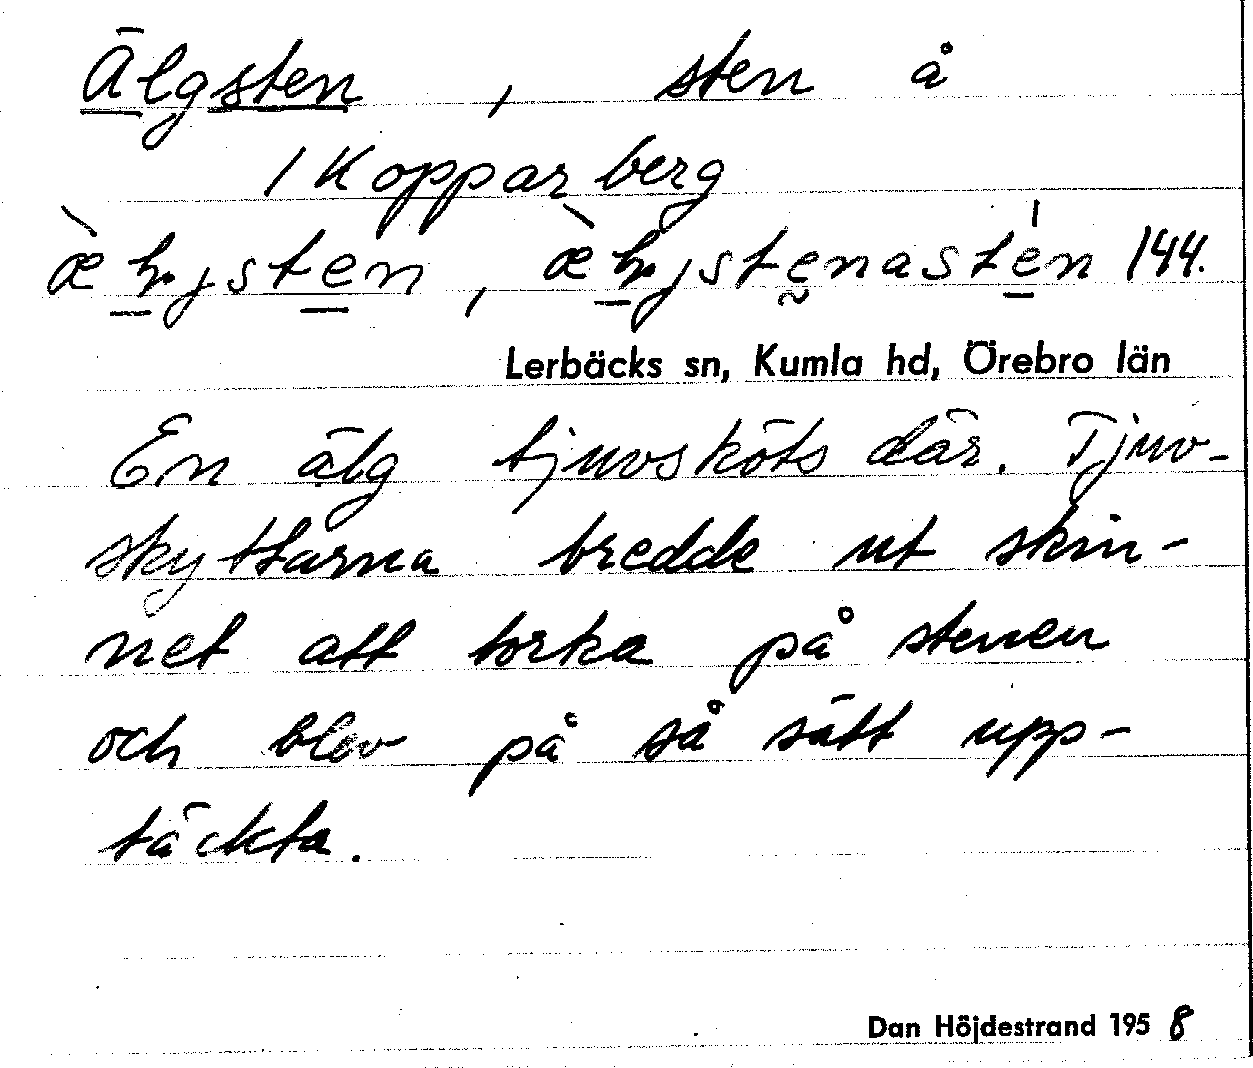 Älgsten, sten å
1 Kopparberg
144.
Lerbäcks sn, Kumla hd, Örebro län
En älg tjuvsköts där. Tjuv-
skyttarna bredde ut skin-
net att torka på stenen
och blev på så sätt upp-
täckta.
Dan Höjdestrand 1958